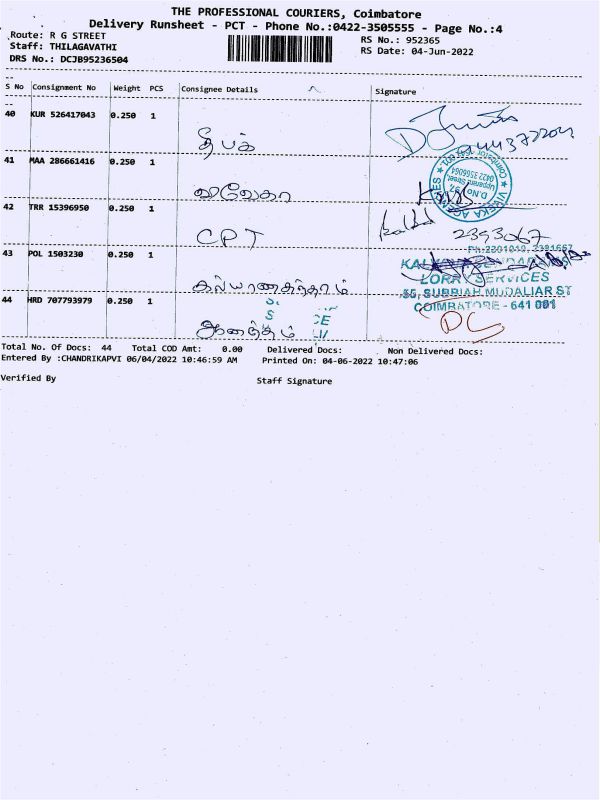 THE PROFESSIONAL COURIERS, Coimbatore
Delivery Runsheet - PCT - Phone No.:0422-3505555 - Page No.:4
Route: R G STREET
Staff: THILAGAVATHI
DRS No.: DCJB95236504
RS No.: 952365
RS Date: 04-Jun-2022
S No Consignment No Weight PCS Consignee Details Signature
40 KUR 526417043 0.250 1
தீபக்
41 MAA 286661416 0.250 1
42 TRR 15396950 0.250 1
CPT 2393067
43 POL 1503230 0.250 1
LORRY SERVICES
55, SUBBIAH MUDALIAR ST
44 HRD 707793979 0.250 1
COIMBATORE - 641 001
Total No. Of Docs: 44 Total COD Amt: 0.00 Delivered Docs: Non Delivered Docs:
Entered By :CHANDRIKAPVI 06/04/2022 10:46:59 AM Printed On: 04-06-2022 10:47:06
Verified By Staff Signature